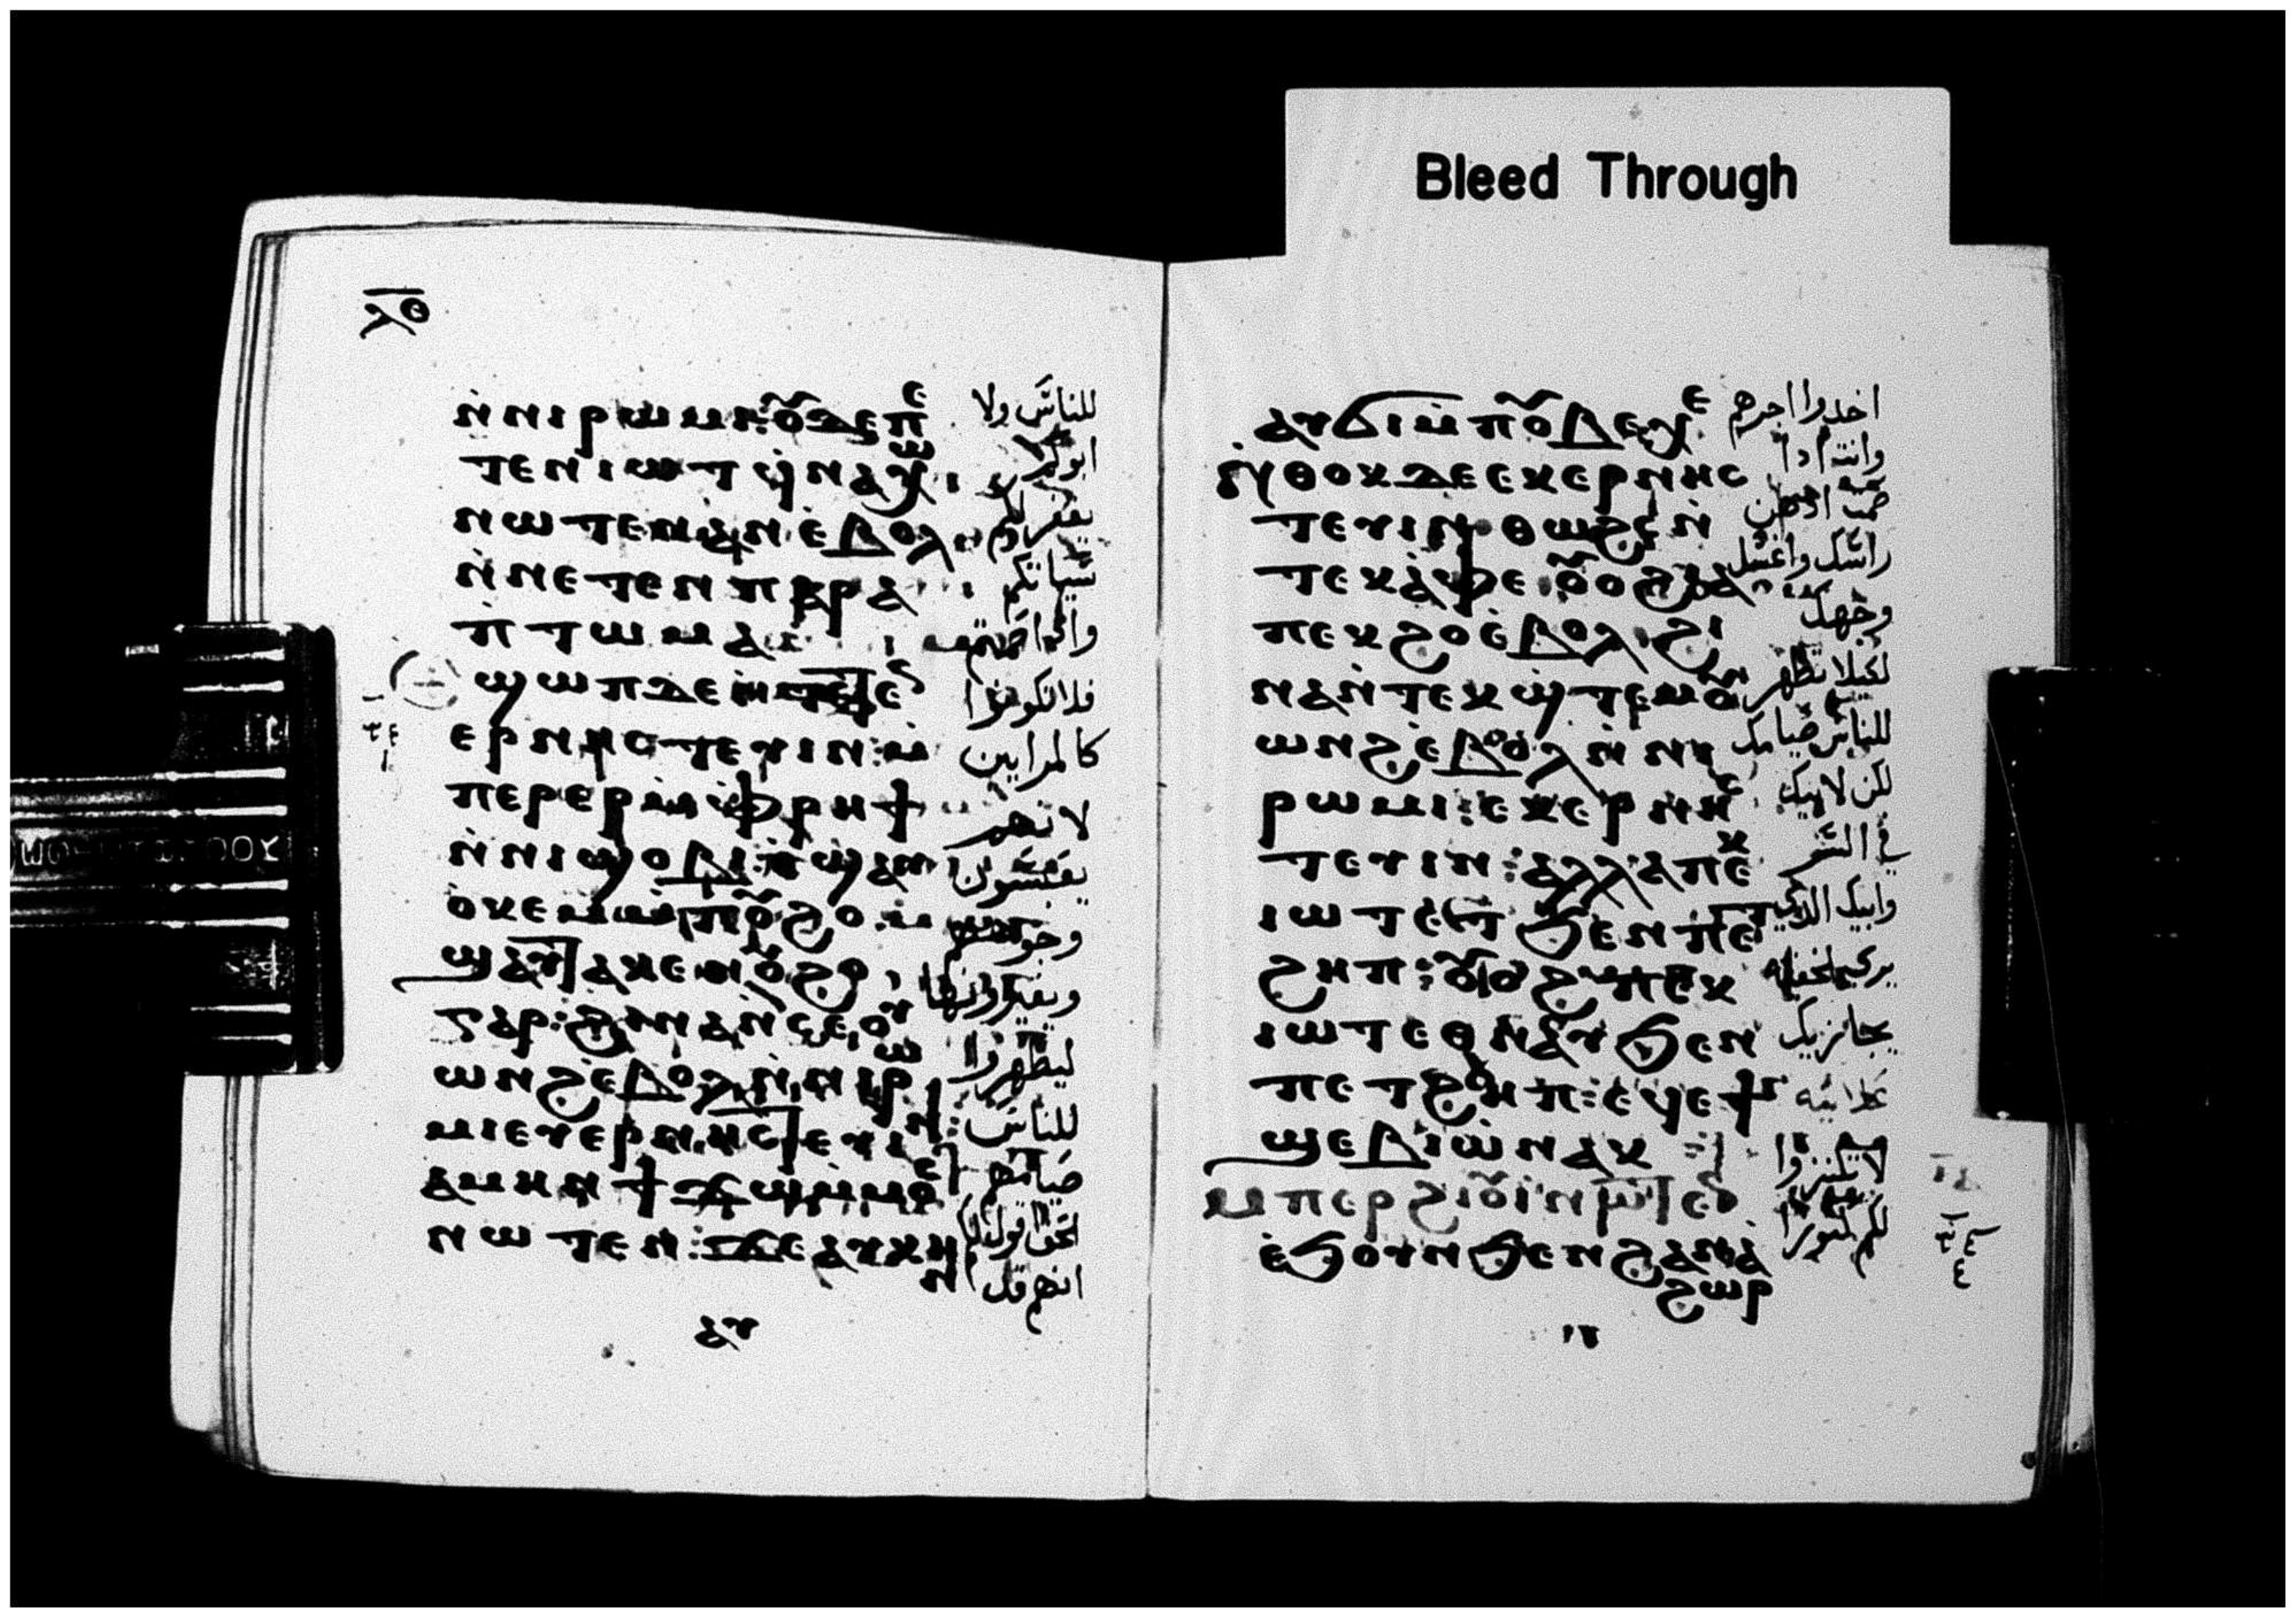 Bleed Through
ⲗⲑ
ⲛ̀ⲛⲓⲣⲱⲙⲓ: ⲟⲩⲇⲉ ⲡⲉ
ⲧⲉⲛⲓⲱⲧ ϥ̀ⲛⲁⲭⲱ
ⲛⲱⲧⲉⲛ ⲁⲛ ⲉ̀ⲃⲟⲗ
ⲛ̀ⲛⲉⲧⲉⲛⲡⲁⲣⲁ
ⲡⲧⲱⲙⲁ
ⲉⲣⲛⲏⲥⲧⲉⲩⲓⲛ: ⲙ̀
ⲡⲉⲣⲉⲣ ⲙ̀ⲫⲣⲏϯ
ⲛ̀ⲛⲓϣⲟⲃⲓ: ϣⲁⲩ
ⲟ̀ⲕⲉⲙ ⲙ̀ⲡⲟⲩϩⲟ
ϣⲁⲩⲧⲁⲕⲉ ⲛⲟⲩϩⲟ
ⲅⲁⲣ: ϩⲓⲛⲁ ⲛ̀ⲥⲉⲟⲩ
ⲱⲛϩ ⲉ̀ⲃⲟⲗ ⲛ̀ⲛⲓⲣⲱ
ⲙⲓ ⲉⲩⲉⲣⲛⲏⲥⲧⲉⲩⲓⲛ:
ⲁⲙⲏⲛ ϯϫⲱ ⲙ̀ⲙⲟⲥ
ⲛⲱⲧⲉⲛ: ϫⲉ ⲁⲩⲕⲏ
ⲛ
ⲁⲩ
للناس ولا
ابوكم
يغفر لكم
سياتكم
واذا صمتم
فلا تكونوا
كالمرايين
لانهم
يعبسون
وجوههم
ويغيرونها
ليظهروا
للناس
صيامهم
الحق اقول لكم
انهم قد
ⲁⲩϭⲓ ⲙ̀ⲡⲟⲩⲃⲉⲭⲉ
ⲛ̀ⲑⲟⲕ ⲇⲉ ⲉⲕⲉⲣⲛⲏⲥ
ⲧⲉⲩⲓⲛ ⲑⲱϩⲥ ⲛ̀
ⲧⲉⲕⲁ̀ⲫⲉ ⲟⲩⲟϩ ⲓⲁ
ⲡⲉⲕϩⲟ ⲉ̀ⲃⲟⲗ ϩⲓ
ⲛⲁ ⲛ̀ⲧⲉⲕϣ̀ⲧⲉⲙⲟⲩ
ⲱⲛϩ ⲉ̀ⲃⲟⲗ ⲛ̀ⲛⲓ
ⲣⲱⲙⲓ: ⲉⲕⲉⲣⲛⲏⲥ
ⲧⲉⲩⲓⲛ: ⲁⲗⲗⲁ ⲡⲉⲕ
ⲓⲱⲧ ⲉⲧ ϧⲉⲛ ⲡⲉⲧ
ϩⲏⲡ: ⲟⲩⲟϩ ⲡⲉⲕ
ⲓⲱⲧ ⲉⲑⲛⲁⲩ ϧⲉⲛ
ⲡⲉⲧϩⲏⲡ: ⲉϥⲉϯ
ϣⲉⲃⲓⲱ̀ ⲛⲁⲕ
ⲙⲡⲉⲣϩⲓⲟⲩⲓ ⲛⲱⲧⲉⲛ
ⲉ̀ϧⲟⲩⲛ ϧⲉⲛ ϩⲁⲛⲁ̀
ϩⲱⲣ
اخدوا اجرهم
وانت اذا
صمت ادهن
راسك واغسل
وجهك
لكيلا تظهر
للناس صيامك
لكن لابيك
في السر
وابيك الذي
يرى الخفيه
يجازيك
علانيه
لا تكنزوا
لكم كنوزا